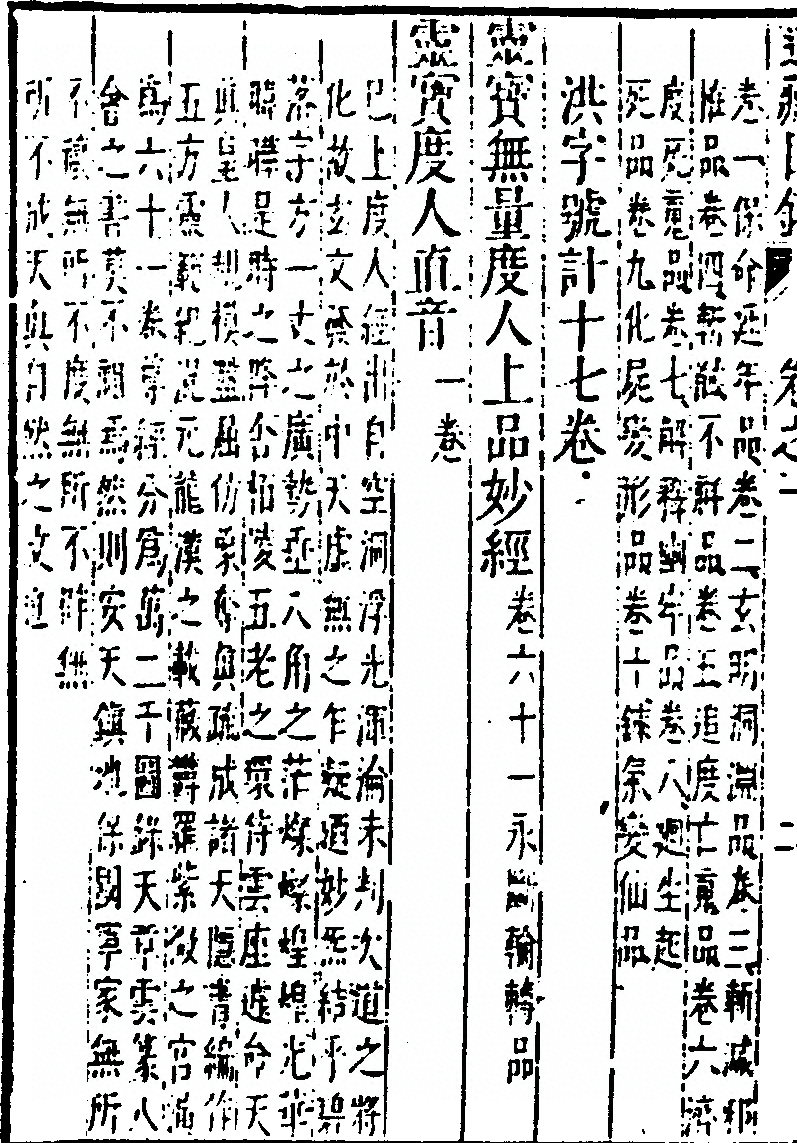 道藏目録 卷之一 二
卷一保命延年品卷二玄明洞淵品卷三斬滅
惟品卷四斬 不祥品卷五追度亡魂品卷六濟
度死魂品卷七解釋幽牢品卷八廻生起
死品卷九化屍變形品卷十鍊氣變仙品
洪字號計十七卷
靈寶無量度人上品妙經卷六十一永斷輪轉品
靈寶度人直音一卷
已上度人經出自空洞浮光渾淪未判次道之將
化故玄文發於中天虛無之乍凝洒妙炁結乎碧
落字方一丈之廣勢垂八角之芒燦燦煌煌光華
曄曄是時之降召拓陵五老之環侍雲座遽命天
真皇人規模 仿 真疏成諸天隱書編作
五方靈範 元龍漢之載藏欝羅紫微之宮
爲六十一卷尊經分爲萬二千圖錄天章雲篆八
會之書莫不詞焉然則安天鎮地保國寧家無所
不禳無所不度無所不辟無
所不成天真自然之文也